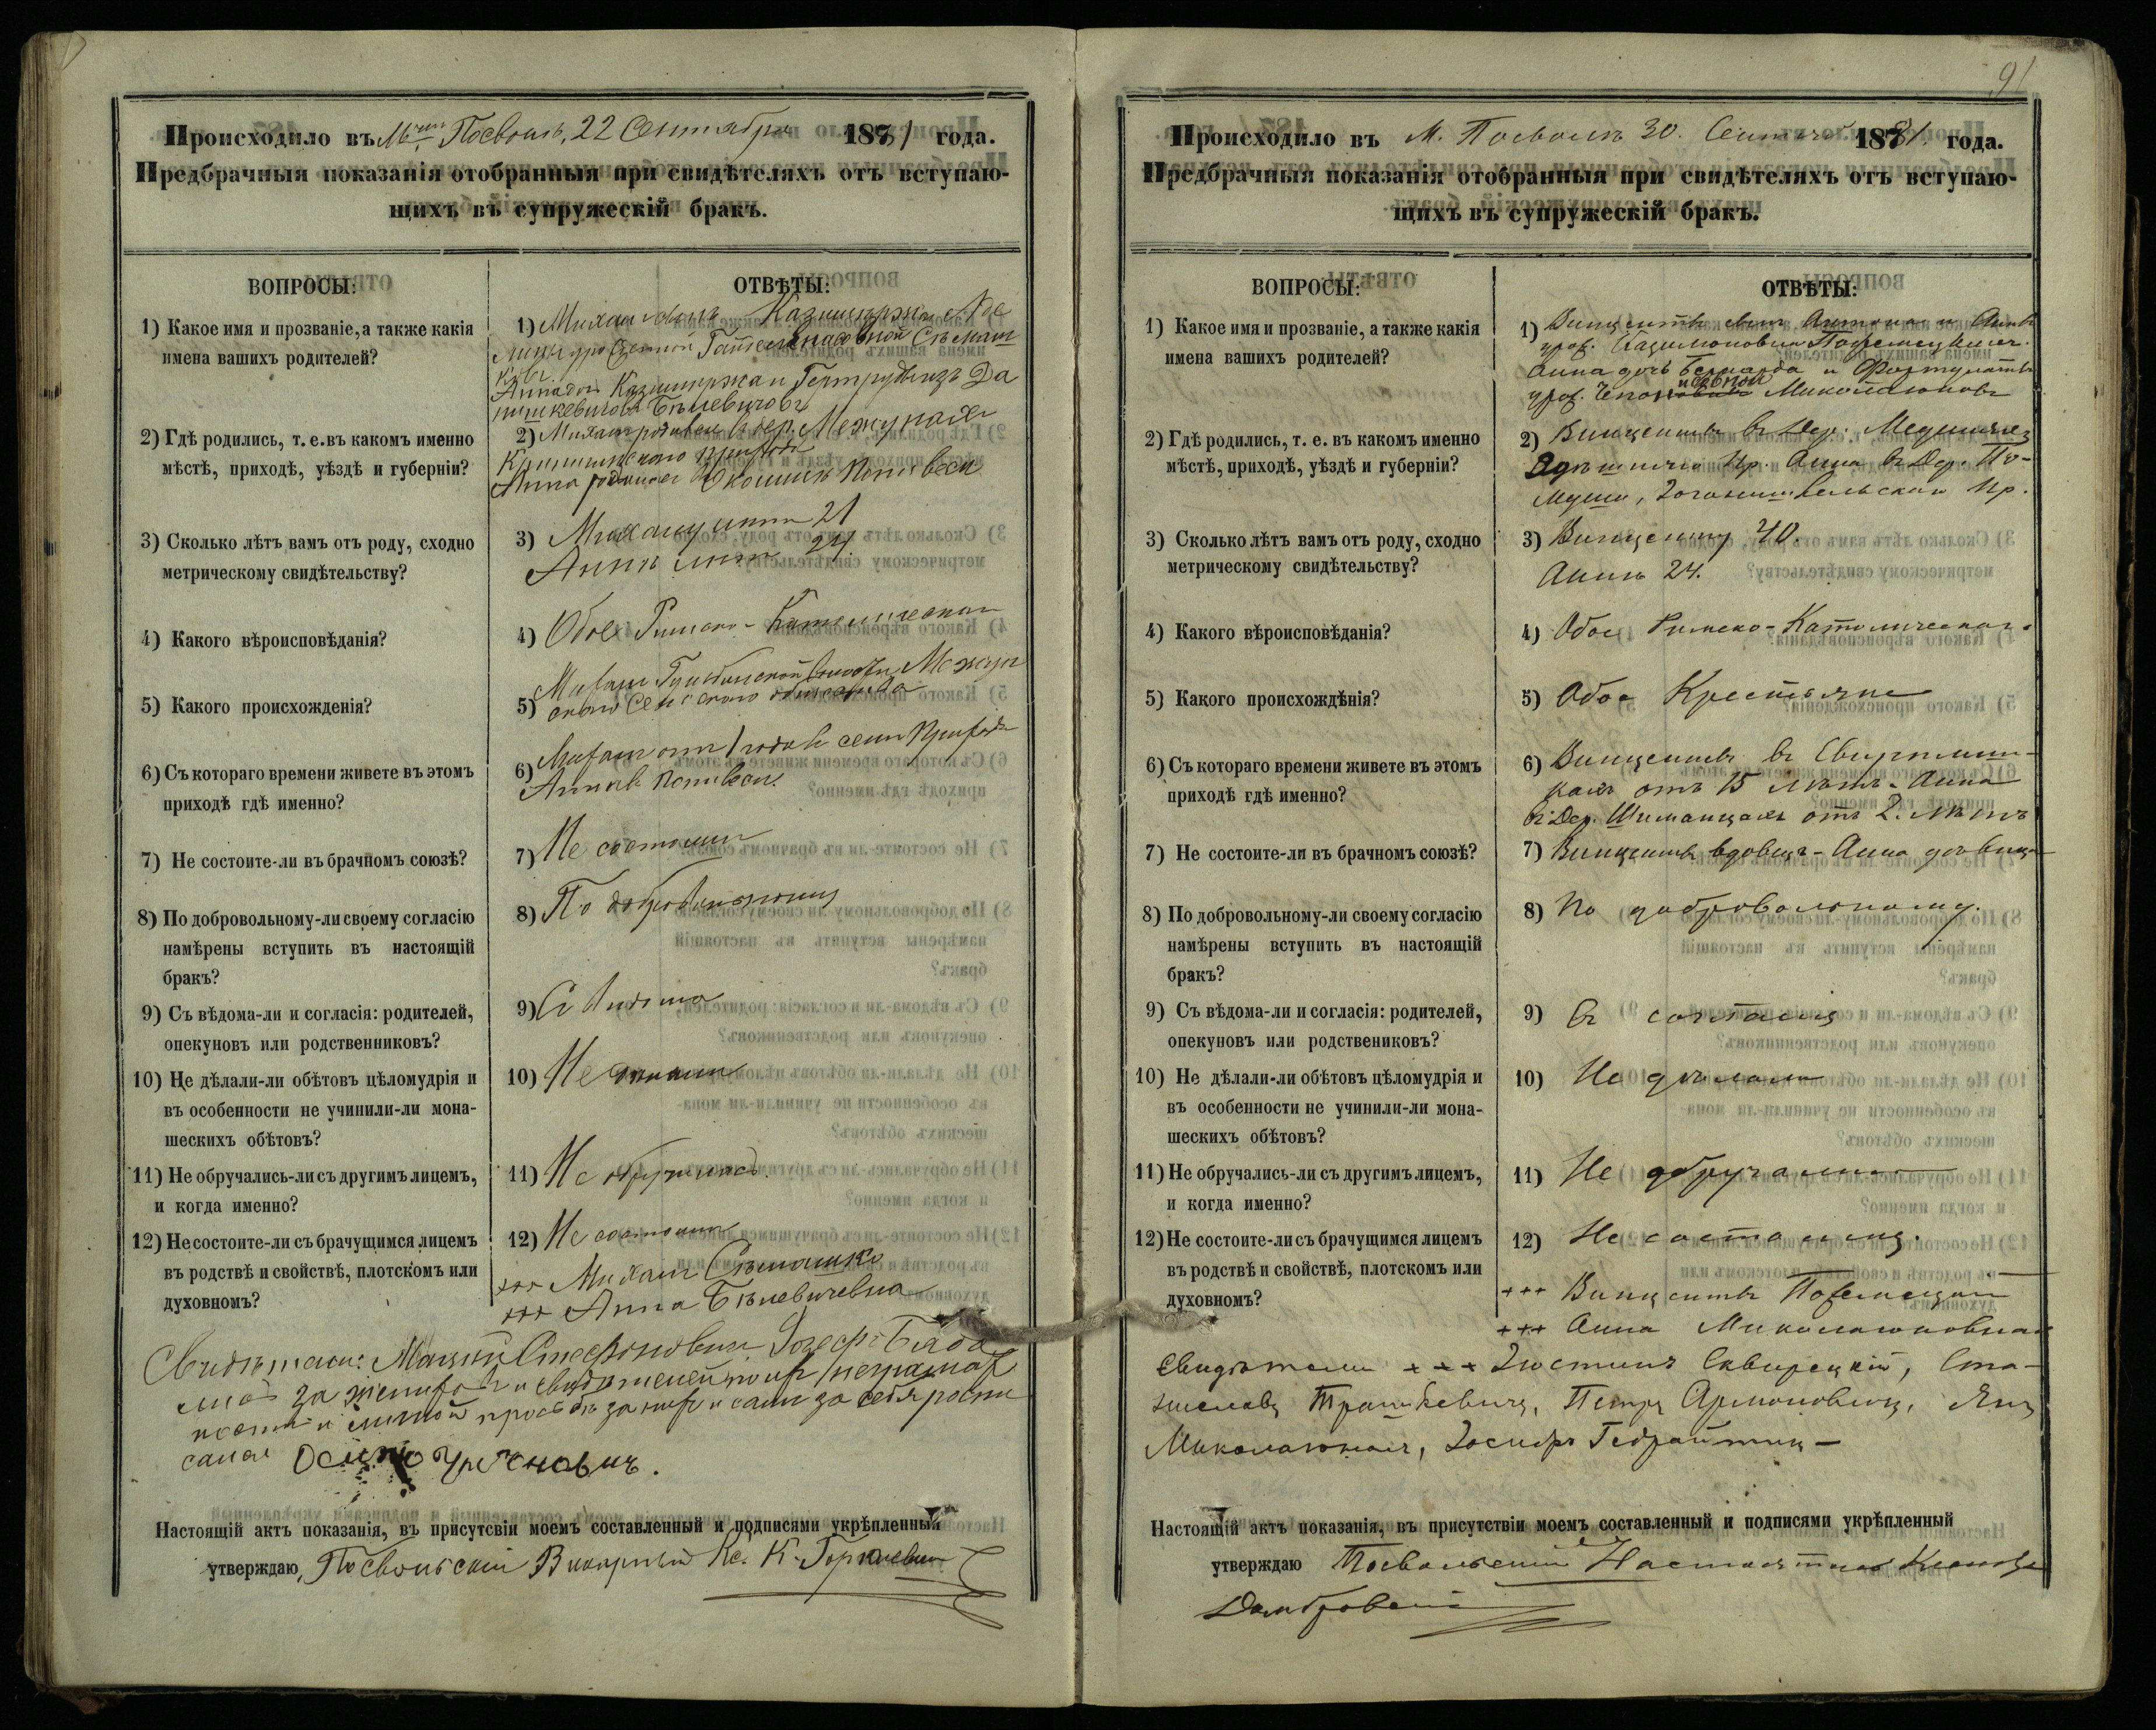 Происходило въ Посволь, 22 Сентября 1881 года.
Предбрачныя показанія отобранныя при свидѣтеляхъ отъ вступаю-
щихъ въ супружескій бракъ.
ВОПРОСЫ:
ОТВѢТЫ:
1) Какое имя и прозваніе, а также какія
имена вашихъ родителей?
1) Михаил Казимиржа
Анна дочь Казимиржа и Гертруды изъ Да
нишкевичовъ Бѣлевичовъ
2) Гдѣ родились, т. е. въ какомъ именно
мѣстѣ, приходѣ, уѣздѣ и губерніи?
2) Михаил родился в дер.
прихода
Анна родилась
3) Сколько лѣтъ вамъ отъ роду, сходно
метрическому свидѣтельству?
3) Михаилу лѣтъ 21
Аннѣ лѣтъ 24.
4) Какого вѣроисповѣданія?
4) Обое Римско-Католическаго
5) Какого происхожденія?
5) Михаил волости
общества
6) Съ котораго времени живете въ этомъ
приходѣ гдѣ именно?
6) Михаил отъ 1 года в семъ приходѣ
Анна в
7) Не состоите-ли въ брачномъ союзѣ?
7) Не состоимъ
8) По добровольному-ли своему согласію
намѣрены вступить въ настоящій
бракъ?
8) По добровольному
9) Съ вѣдома-ли и согласія: родителей,
опекуновъ или родственниковъ?
9) Съ вѣдома
10) Не дѣлали-ли обѣтовъ цѣломудрія и
въ особенности не учинили-ли мона-
шескихъ обѣтовъ?
10) Не дѣлали
11) Не обручались-ли съ другимъ лицемъ,
и когда именно?
11) Не обручались.
12) Не состоите-ли съ брачущимся лицемъ
въ родствѣ и свойствѣ, плотскомъ или
духовномъ?
12) Не состоимъ
+++ Михаил Сѣмашко
+++ Анна Бѣлевичевна
Свидѣтели: Мацѣй Стефановичъ, Іозефъ
за и свидѣтелей по их неграмот
ности и личной просьбѣ за них и сам за себя роспи
сался Осипъ
Настоящій актъ показанія, въ присутсвіи моемъ составленный и подписями укрѣпленный
утверждаю, Посвольскій Викарный Кс. К.
91
Происходило въ М. Посволь 30. Сентября 1881. года.
Предбрачныя показанія отобранныя при свидѣтеляхъ отъ вступаю-
щихъ въ супружескій бракъ.
ВОПРОСЫ:
ОТВѢТЫ:
1) Какое имя и прозваніе, а также какія
имена вашихъ родителей?
1) Винцентъ сынъ Антона и Анны
урож.
Анна дочь Бернарда и Фортунаты
урож. Миколаюновъ
2) Гдѣ родились, т. е. въ какомъ именно
мѣстѣ, приходѣ, уѣздѣ и губерніи?
2) Винцентъ в Дер.
пр. Анна в Дер. По-
муши, Іоганишкельскаго пр.
3) Сколько лѣтъ вамъ отъ роду, сходно
метрическому свидѣтельству?
3) Винценту 40.
Аннѣ 24.
4) Какого вѣроисповѣданія?
4) Обое Римско-Католическаго.
5) Какого происхождѣнія?
5) Обое Крестьяне
6) Съ котораго времени живете въ этомъ
приходѣ гдѣ именно?
6) Винцентъ в Свиртлиш-
кахъ отъ 15 лѣтъ - Анна
в Дер. Шиманцахъ отъ 2. лѣтъ
7) Не состоите-ли въ брачномъ союзѣ?
7) Винцентъ вдовецъ - Анна дѣвица
8) По добровольному-ли своему согласію
намѣрены вступить въ настоящій
бракъ?
8) По добровольному.
9) Съ вѣдома-ли и согласія: родителей,
опекуновъ или родствениковъ?
9) Съ согласія
10) Не дѣлали-ли обѣтовъ цѣломудрія и
въ особенности не учинили-ли мона-
шескихъ обѣтовъ?
10) Не дѣлали
11) Не обручались-ли съ другимъ лицемъ,
и когда именно?
11) Не обручались
12) Не состоите-ли съ брачущимся лицемъ
въ родствѣ и свойствѣ, плотскомъ или
духовномъ?
12) Не состоимъ.
+++ Винцентъ
+++ Анна Миколаюновна
Свидѣтели +++ Іюстинъ Сквирецкій, Ста-
ниславъ Трашкевичъ, Петръ Армоновичъ, Янъ
Миколаюнасъ, Іосифъ Гедрайтисъ -
Настоящій актъ показанія, въ присутствіи моемъ составленный и подписями укрѣпленный
утверждаю Посвольскій Настоятель Ксендзъ
Домбровскій